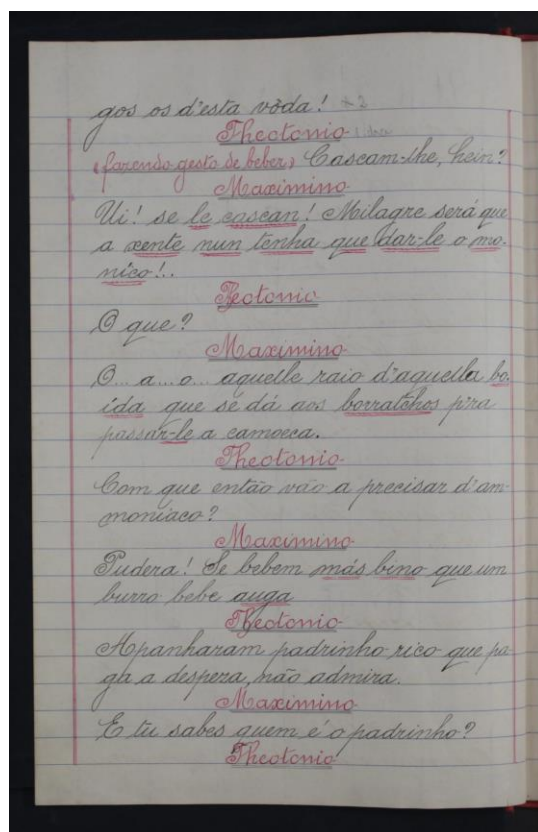 gos os d'esta vòda! +2
Theotonio
(fazendo gesto de beber) Cascam-lhe, hein?
Maximino
Ui! se le cascan! Milagre será que
a xente nun tenha que dar-le o mo-
nico!..
Teotonio
O que?
Maximino
O... a... o... aquelle raio d'aquella bo-
ida que se dá aos borratchos p'ra
passar-le a camoeca.
Theotonio
Com que então vão a precisar d'am-
moniaco?
Maximino
Pudera! Se bebem más bino que um
burro bebe auga
Theotonio
Apanharam padrinho rico que pa-
ga a despeza, não admira.
Maximino
E tu sabes quem é o padrinho?
Theotonio